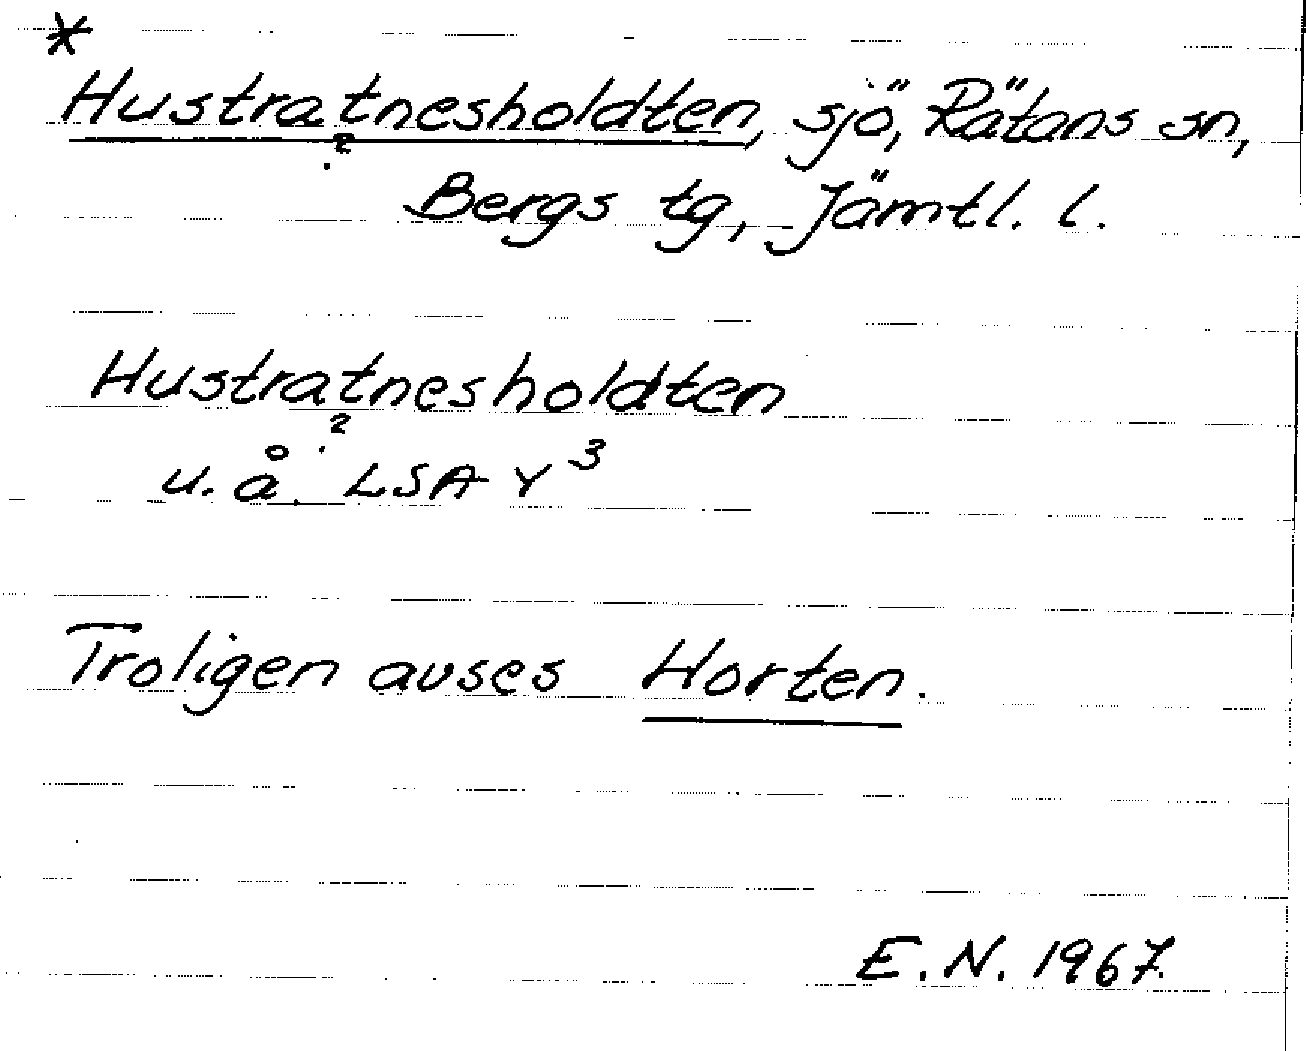 *
Hustratnesholdten, sjö, Rätans sn,
?
Bergs tg, Jämtl. l.
Hustratnesholdten
?
u. å. LSA Y 3
Troligen avses Horten.
E. N. 1967.